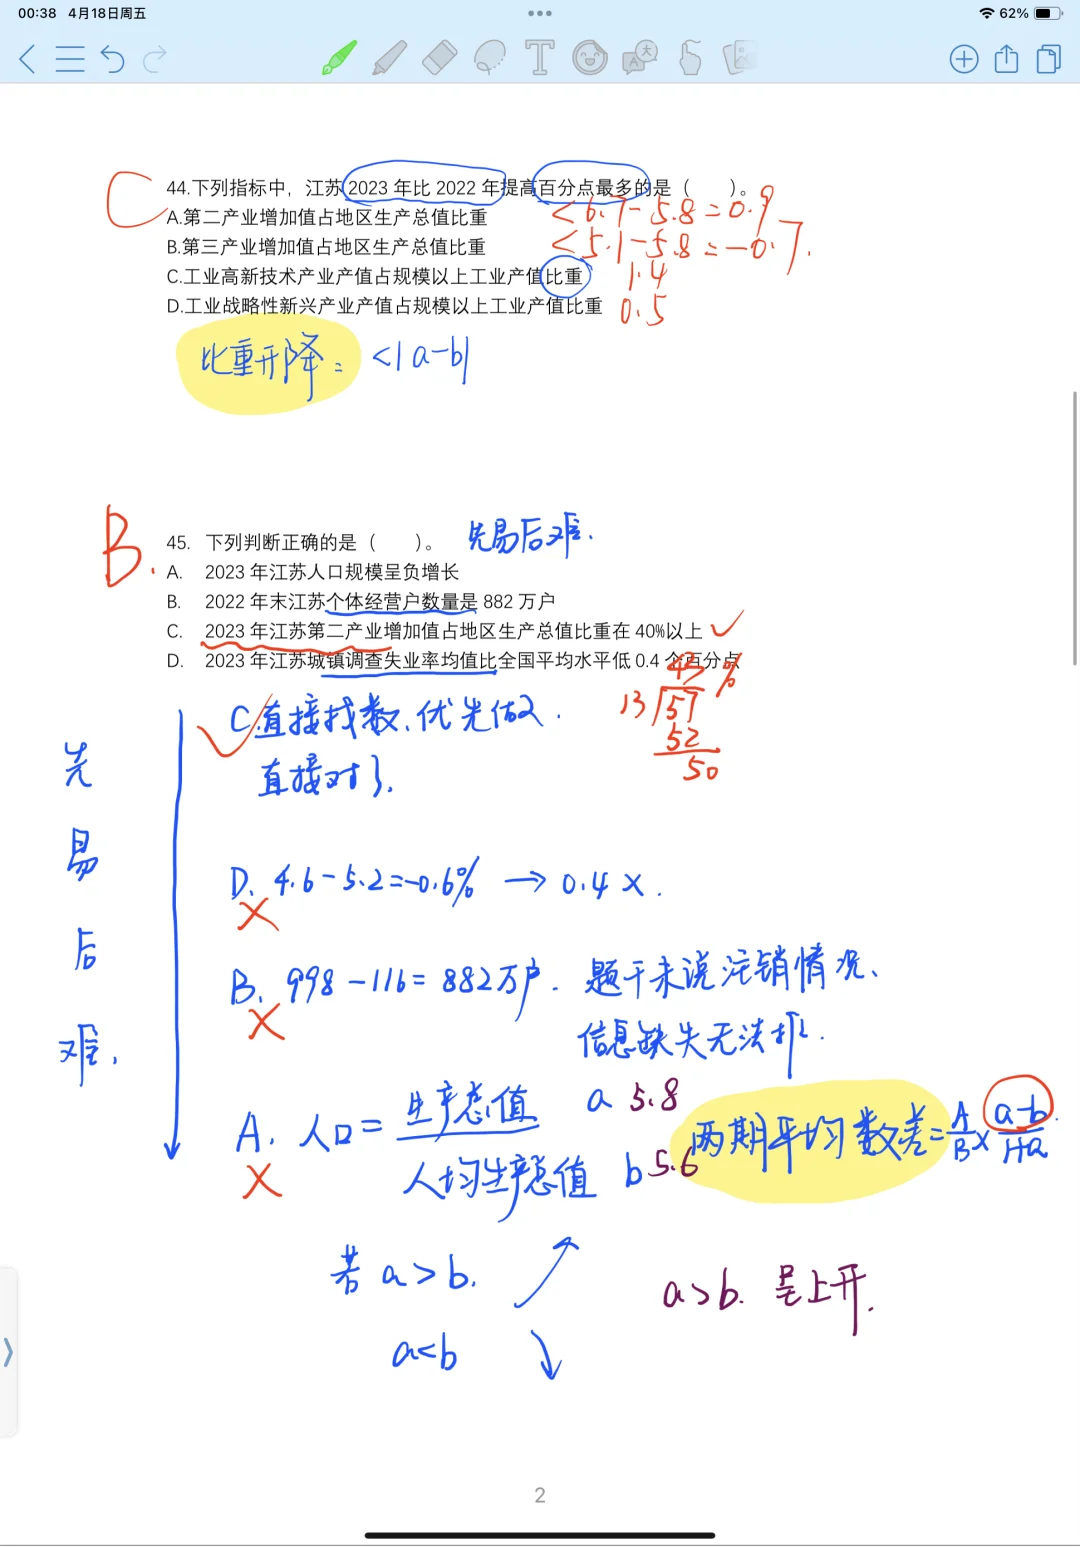 00:38 4月18日周五
62%
44.下列指标中，江苏 2023 年比 2022 年提高百分点最多的是（ ）。
C
A.第二产业增加值占地区生产总值比重
<6.7-5.8=0.9
B.第三产业增加值占地区生产总值比重
<5.1-5.8=-0.7.
C.工业高新技术产业产值占规模以上工业产值比重
1.4
D.工业战略性新兴产业产值占规模以上工业产值比重
0.5
比重升降： <|a-b|
B.
45. 下列判断正确的是（ ）。 先易后难.
A. 2023 年江苏人口规模呈负增长
B. 2022 年末江苏个体经营户数量是 882 万户
C. 2023 年江苏第二产业增加值占地区生产总值比重在 40%以上
D. 2023 年江苏城镇调查失业率均值比全国平均水平低 0.4 个百分点
43%
13 57
52
50
先易后难.
C.直接找数、优先做.
直接对了.
D、4.6-5.2=-0.6% → 0.4 ×.
B、998-116=882万户. 题干未说注销情况、
信息缺失无法推.
A. 人口= 生产总值
人均生产总值
a 5.8
b 5.6
两期平均数差= A/B × a-b/1+a
若 a>b.
a>b. 呈上升.
a<b
2